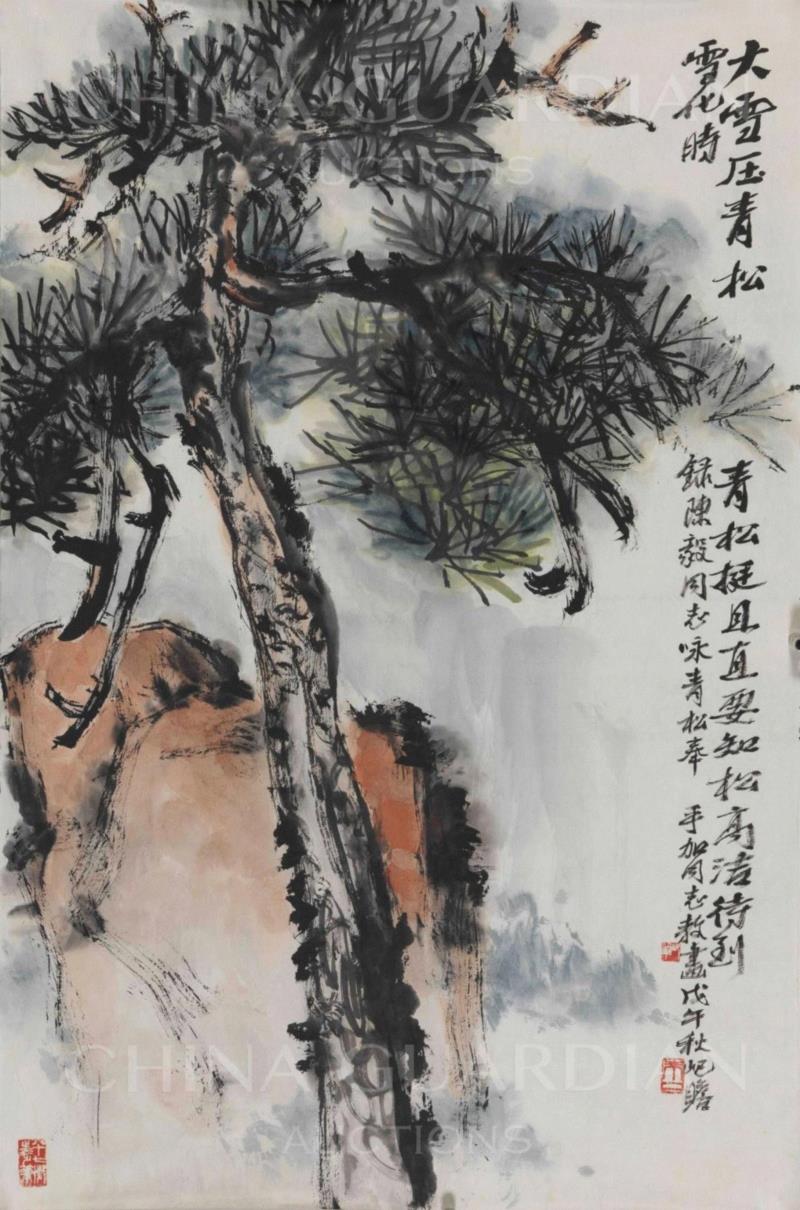 大雪压青松
青松挺且直要知松高洁待到
雪化時
録陳毅同志咏青松奉
手加同志教畫戊午秋屺瞻
CHINA GUARDIAN
AUCTIONS
CHINA GUARDIAN
AUCTIONS